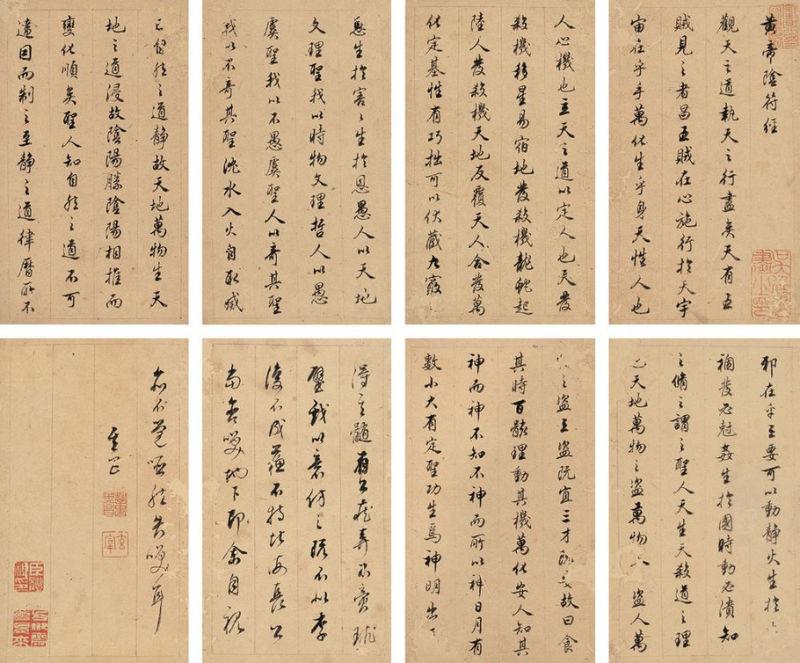 黃帝陰符經
觀天之道執天之行盡矣天有五
賊見之者昌五賊在心施行於天宇
宙在乎手萬化生乎身天性人也
人心機也立天之道以定人也天發
殺機移星易宿地發殺機龍蛇起
陸人發殺機天地反覆天人合發萬
化定基性有巧拙可以伏藏九竅
恩生於害害生於恩愚人以天地
文理聖我以時物文理哲人以愚
虞聖我以不愚虞聖人以奇其聖
我以不奇其聖沈水入火自取滅
亡自然之道靜故天地萬物生天
地之道浸故陰陽勝陰陽相推而
變化順矣聖人知自然之道不可
違因而制之至靜之道律曆所不
邪在乎三要可以動靜火生於
禍發必尅姦生於國時動必潰知
之脩之謂之聖人天生天殺道之理
也天地萬物之盜萬物人盜人萬
之盜三盜既宜三才既安故曰食
其時百骸理動其機萬化安人知其
神而神不知不神而所以神日月有
數小大有定聖功生焉神明出
得其髓
我以意仿之不似李
後不成蘓不特北海長公
當含嘆地下即余自視
亦不覺啞然失笑耳
其昌